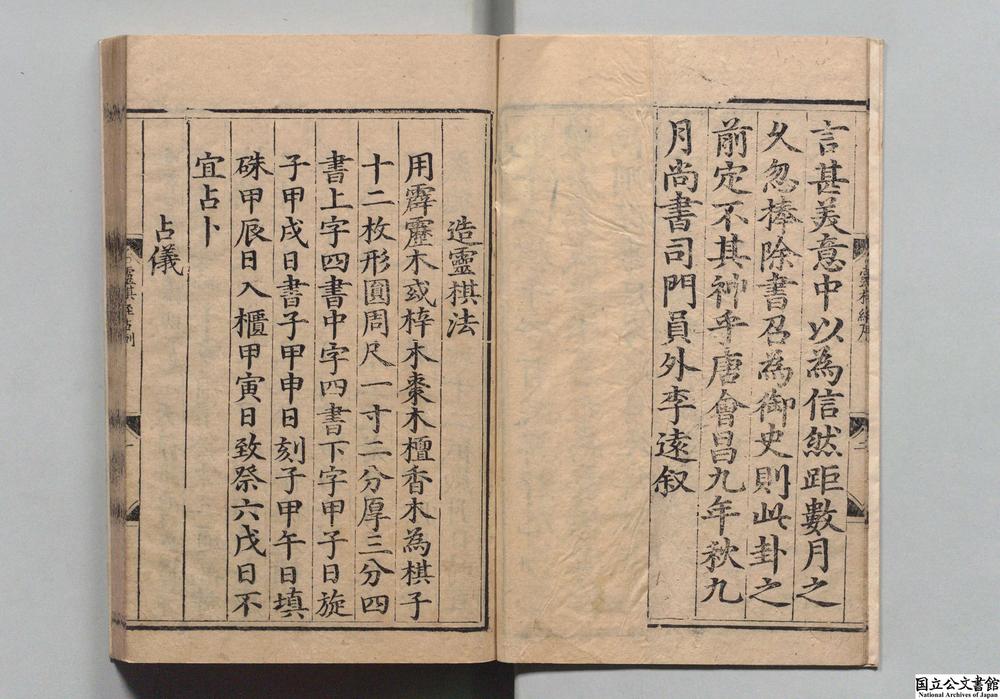 言甚美意中以為信然距數月之
久忽捧除書召為御史則此卦之
前定不其神乎唐會昌九年秋九
月尚書司門員外李遠叙
造靈棋法
用霹靂木或梓木棗木檀香木為棋子
十二枚形圓周尺一寸二分厚三分四
書上字四書中字四書下字甲子日旋
子甲戌日書子甲申日刻子甲午日填
硃甲辰日入櫃甲寅日致祭六戊日不
宜占卜
占儀
国立公文書館
National Archives of Japan